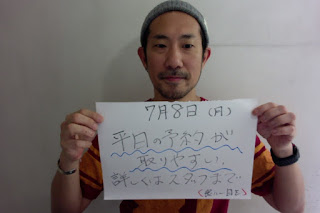 7月8日(月)
平日の予約が
取りやすい。
詳しくはスタッフまで